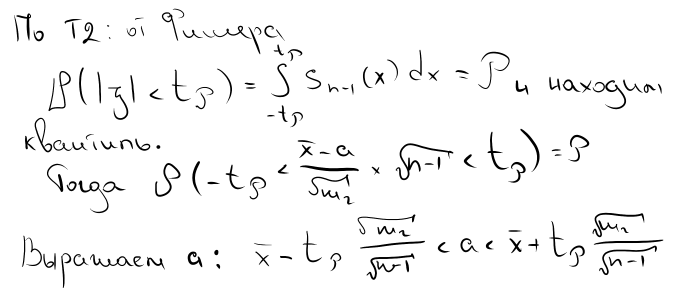 По Т2: от Фишера
P(|ξ| < t_ρ) = ∫_{-t_ρ}^{t_ρ} S_{n-1}(x) dx = ρ и находим
квантиль.
Тогда P(-t_ρ < \frac{x̄-a}{√m₂} × √n-1 < t_ρ) = ρ
Выражаем a: x̄ - t_ρ \frac{√m₂}{√n-1} < a < x̄ + t_ρ \frac{√m₂}{√n-1}